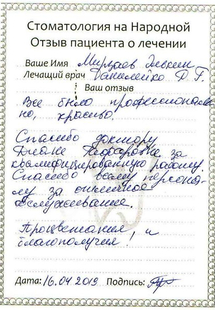 Стоматология на Народной
Отзыв пациента о лечении
Ваше Имя
Лечащий врач Данилейко Д. Г.
Ваш отзыв
Все было профессиональ
но, красиво.
Спасибо доктору
за
квалифицированную работу.
Спасибо всему персона
лу за отличное
обслуживание.
Процветания и
благополучия!
Дата: 16.04.2019 Подпись: